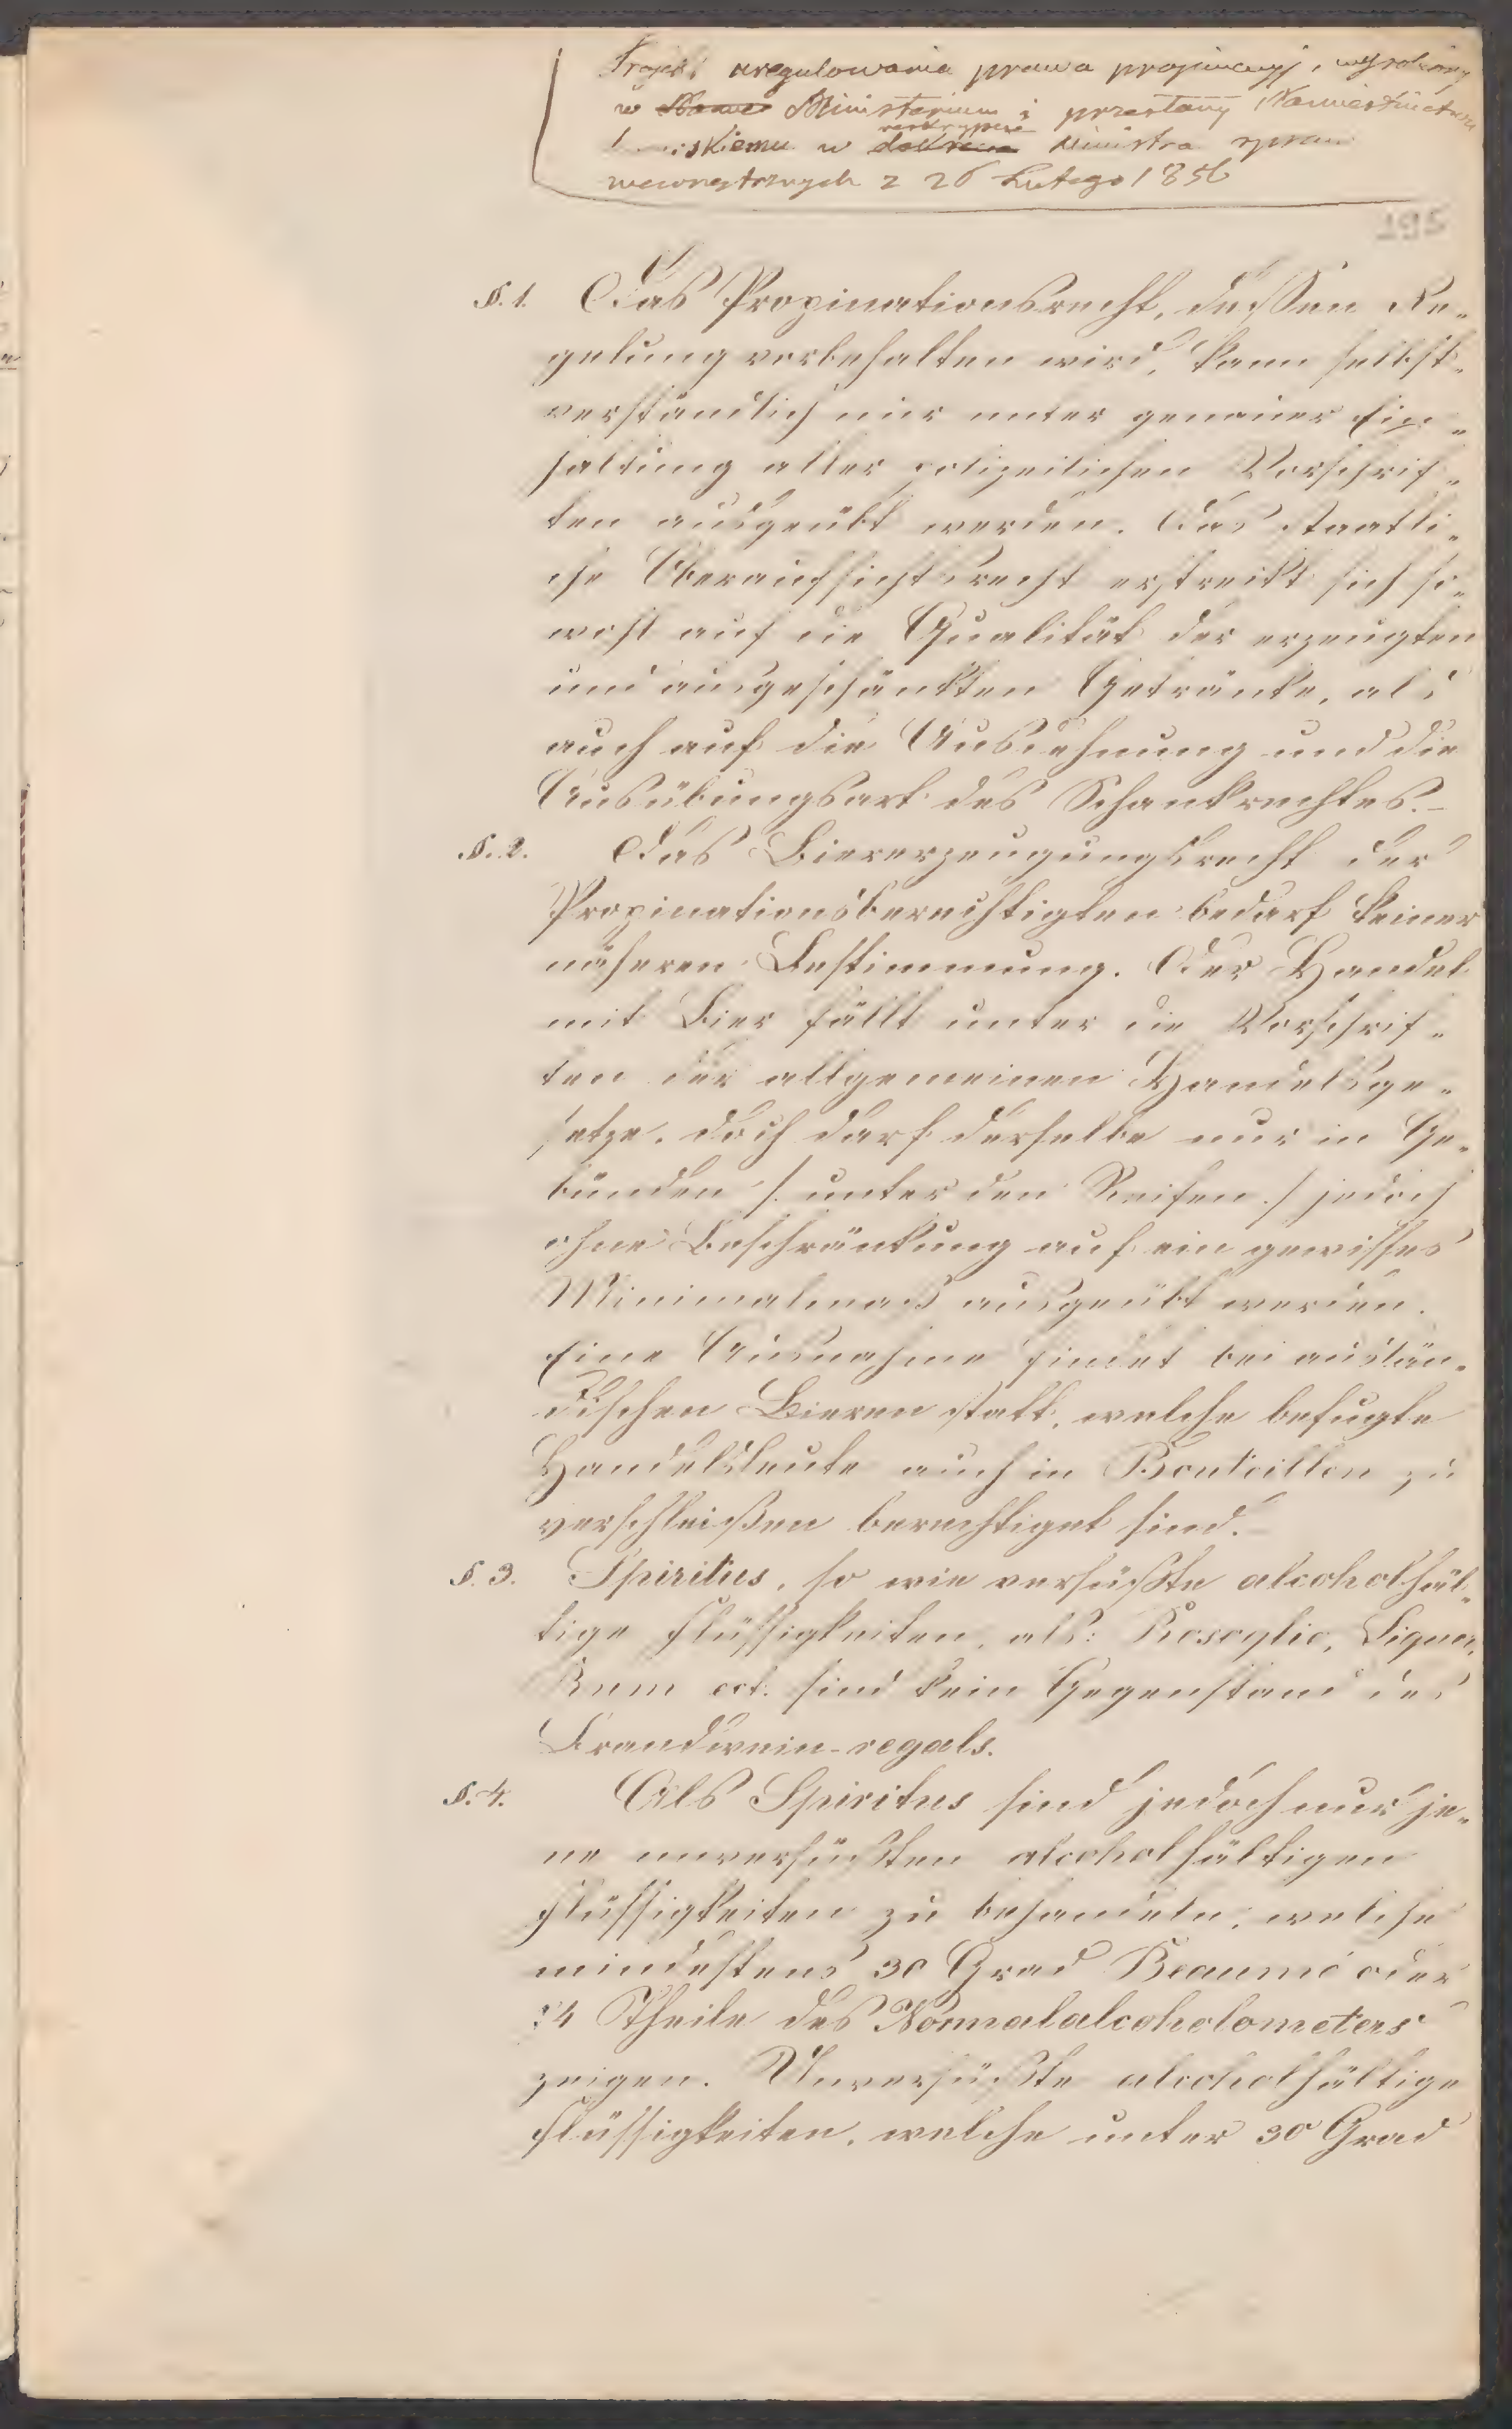 Projekt uregulowania prawa propinacyj, wyrobiony
w Ministerium i przesłany Namiestnictwu
w reskrypcie Ministra spraw
wewnętrznych z 26 Lutego 1856
195
§. 1. Das Propinationsrecht, dessen Re-
gelung vorbehalten wird, kann selbst-
verständlich nur unter genauer Ein-
haltung aller polizeilichen Vorschrif-
ten ausgeübt werden. Das staatli-
che Oberaufsichtsrecht erstreckt sich so-
wohl auf die Qualität der erzeugten
und ausgeschänkten Getränke, als
auch auf die Ausdehnung und die
Ausübungsart des Schankrechtes.-
§. 2. Das Biererzeugungsrecht der
Propinationsberechtigten bedarf keiner
näheren Bestimmung. Der Handel
mit Bier fällt unter die Vorschrif-
ten der allgemeinen Handelsge-
setze, doch darf derselbe nur in Ge-
bünden /. unter den Reifen ./ jedoch
ohne Beschränkung auf ein gewisses
Minimalmaß ausgeübt werden.
Eine Ausnahme findet bei auslän-
dischen Bieren statt, welche befugte
Handelsleute auch in Bouteillen zu
verschleißen berechtiget sind.-
§. 3. Spiritus, so wie versüßte alcoholhäl-
tige Flüssigkeiten, als: Rosoglio, Liqueur,
Rum ect. sind kein Gegenstand des
Brandwein-regals.
§. 4. Als Spiritus sind jedoch nur je-
ne unversüßten alcoholhältigen
Flüssigkeiten zu behandeln, welche
mindestens 30 Grad Beaumé oder
Theile des Normalalcoholometers
zeigen. Unversüßte alcoholhältige
Flüssigkeiten, welche unter 30 Grad